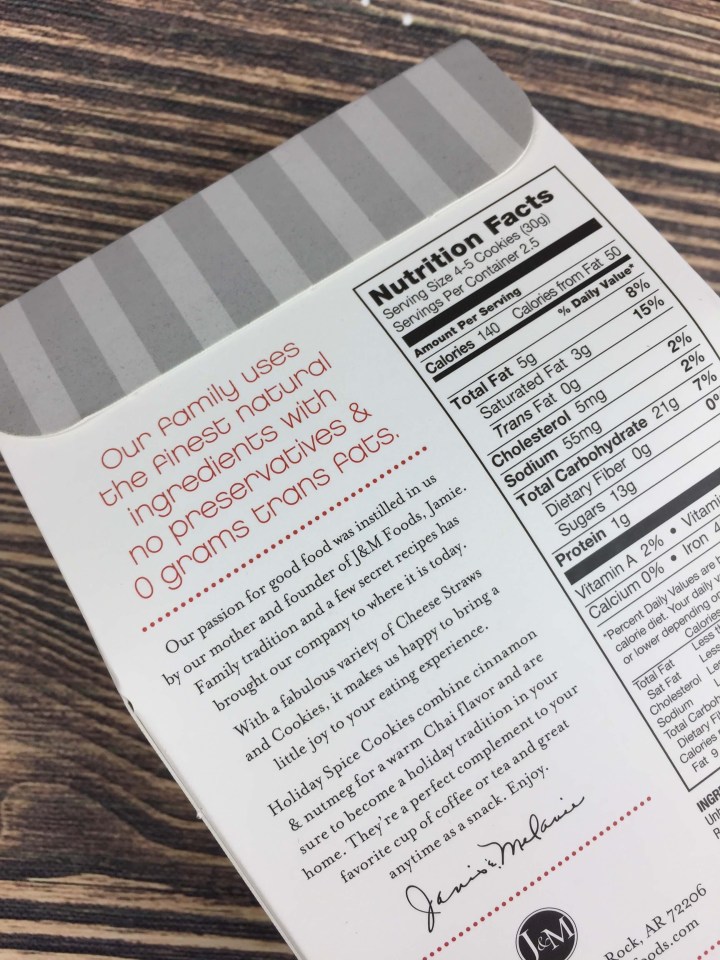 Our family uses
the finest natural
ingredients with
no preservatives &
0 grams trans fats.
Our passion for good food was instilled in us
by our mother and founder of J&M Foods, Jamie.
Family tradition and a few secret recipes has
brought our company to where it is today.
With a fabulous variety of Cheese Straws
and Cookies, it makes us happy to bring a
little joy to your eating experience.
Holiday Spice Cookies combine cinnamon
& nutmeg for a warm Chai flavor and are
sure to become a holiday tradition in your
home. They're a perfect complement to your
favorite cup of coffee or tea and great
anytime as a snack. Enjoy.
Janis & Melanie
J&M
Rock, AR 72206
Nutrition Facts
Serving Size 4-5 Cookies (30g)
Servings Per Container 2.5
Amount Per Serving
Calories 140 Calories from Fat 50
% Daily Value*
Total Fat 5g 8%
Saturated Fat 3g 15%
Trans Fat 0g
Cholesterol 5mg 2%
Sodium 55mg 2%
Total Carbohydrate 21g 7%
Dietary Fiber 0g
Sugars 13g
Protein 1g
Vitamin A 2% •
Calcium 0% • Iron
*Percent Daily Values are
calorie diet. Your daily
or lower depending
Calories
Total Fat Less
Sat Fat Less
Cholesterol
Sodium
Total
Dietary
Calories
Fat 9